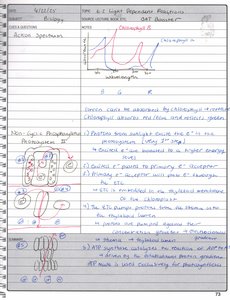 DATE 4/22/25
TOPIC 6.2 Light Dependent Reactions
SUBJECT Biology
SOURCE: LECTURE, BOOK, ETC. DAT Booster
CUES & QUESTIONS
CLASS NOTES
Action Spectrum
Chlorophyll B
Chlorophyll A
Wavelength
B G R
Green can't be absorbed by chlorophyll
Chlorophyll absorbs red/blue and reflects green
Non-Cyclic Phosphorylation
Photosystem II
1) Photons from sunlight excite the e⁻ in the
photosystems
↳ Excited e⁻ are boosted to a higher energy
level
2) Excited e⁻ passed to primary e⁻ acceptor
3) Primary e⁻ acceptor will pass e⁻ through
the ETC
↳ ETC is embedded in the thylakoid membrane
of the chloroplast
4) The ETC pumps protons from the stroma to
the thylakoid lumen
↳ protons are pumped against their
concentration gradient
↳ Stroma → thylakoid lumen
gradient
SUMMARY
5) ATP synthase catalyzes the reaction of ADP
↳ driven by the electrochemical proton gradient
ATP made is used exclusively for photosynthesis
73